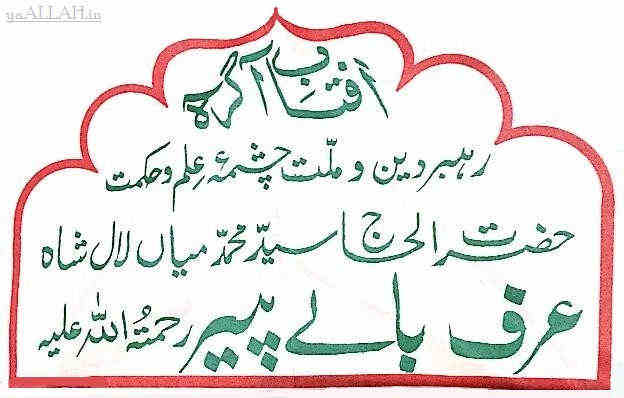 yaALLAH.in
آفتابِ آگرہ
رہبر دین و ملّت چشمۂ عِلم و حکمت
حضرت الحاج سیّد محمّد میاں لال شاہ
عرف بالے پیر رحمتہُ اللّٰہ علیہ